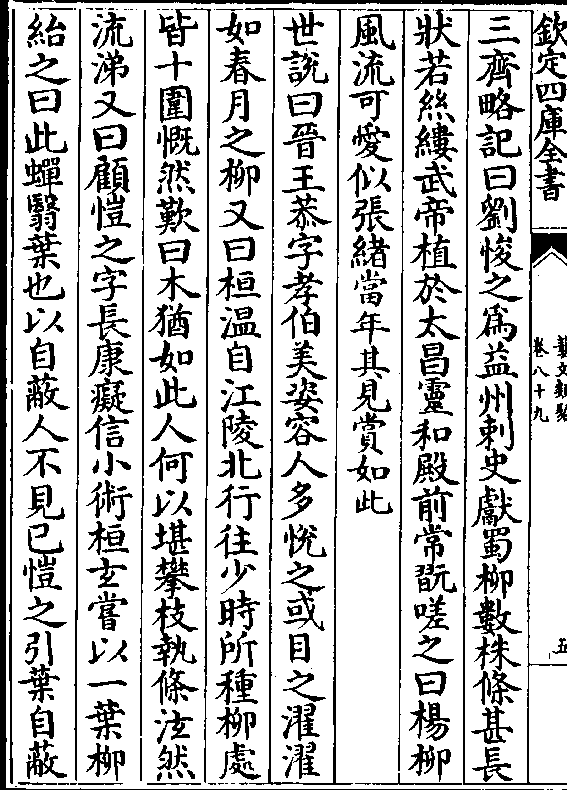 欽定四庫全書
藝文類聚
卷八十九
五
三齊略記曰劉悛之爲益州刺史獻蜀柳數株條甚長
狀若絲縷武帝植於太昌靈和殿前常翫嗟之曰楊柳
風流可愛似張緒當年其見賞如此
世說曰晉王恭字孝伯美姿容人多悅之或目之濯濯
如春月之柳又曰桓溫自江陵北行往少時所種柳處
皆十圍慨然歎曰木猶如此人何以堪攀枝執條泫然
流涕又曰顧愷之字長康癡信小術桓玄嘗以一葉柳
紿之曰此蟬翳葉也以自蔽人不見已愷之引葉自蔽